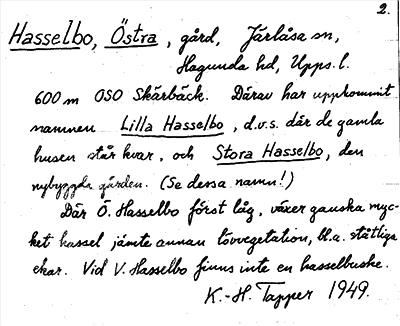 2.
Hasselbo, Östra, gård, Järlåsa sn,
Hagunda hd, Upps. l.
600 m OSO Skärbäck. Därav har uppkommit
namnen Lilla Hasselbo, d.v.s. där de gamla
husen står kvar, och Stora Hasselbo, den
nybyggda gården. (Se dessa namn!)
Där Ö. Hasselbo först låg, växer ganska myc-
ket hassel jämte annan lövvegetation, bl.a. ståtliga
ekar. Vid V. Hasselbo finns inte en hasselbuske.
K.-H. Tapper 1949.